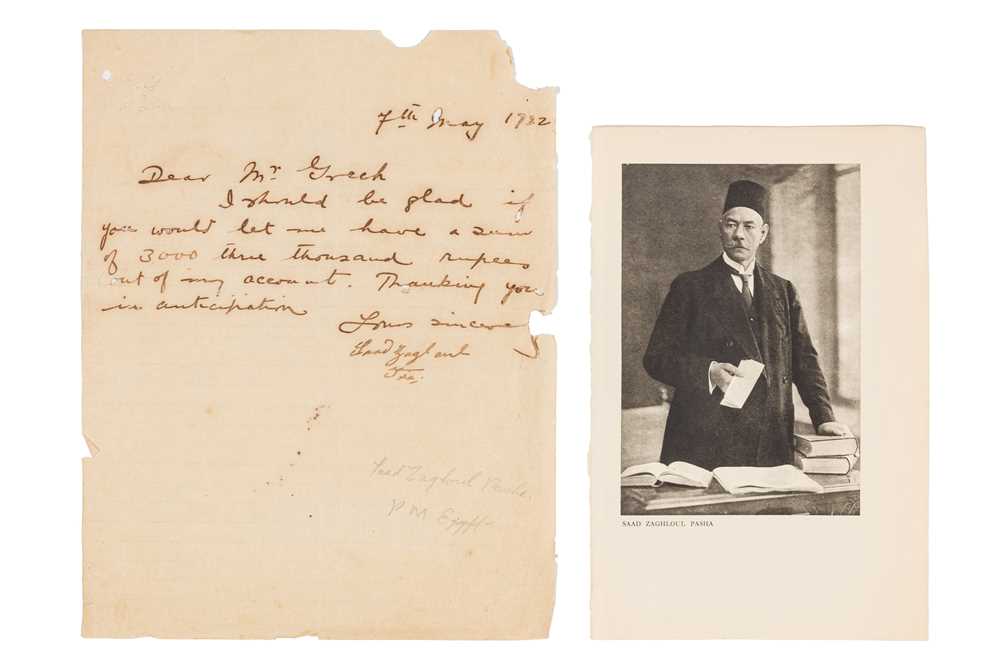 7th May 1922
Dear Mr Grech
I should be glad if
you would let me have a sum
of 3000 three thousand rupees
out of my account. Thanking you
in anticipation
Yours sincerely
Saad Zagloul
Saad Zaghloul Pasha.
PM Egypt
SAAD ZAGHLOUL PASHA